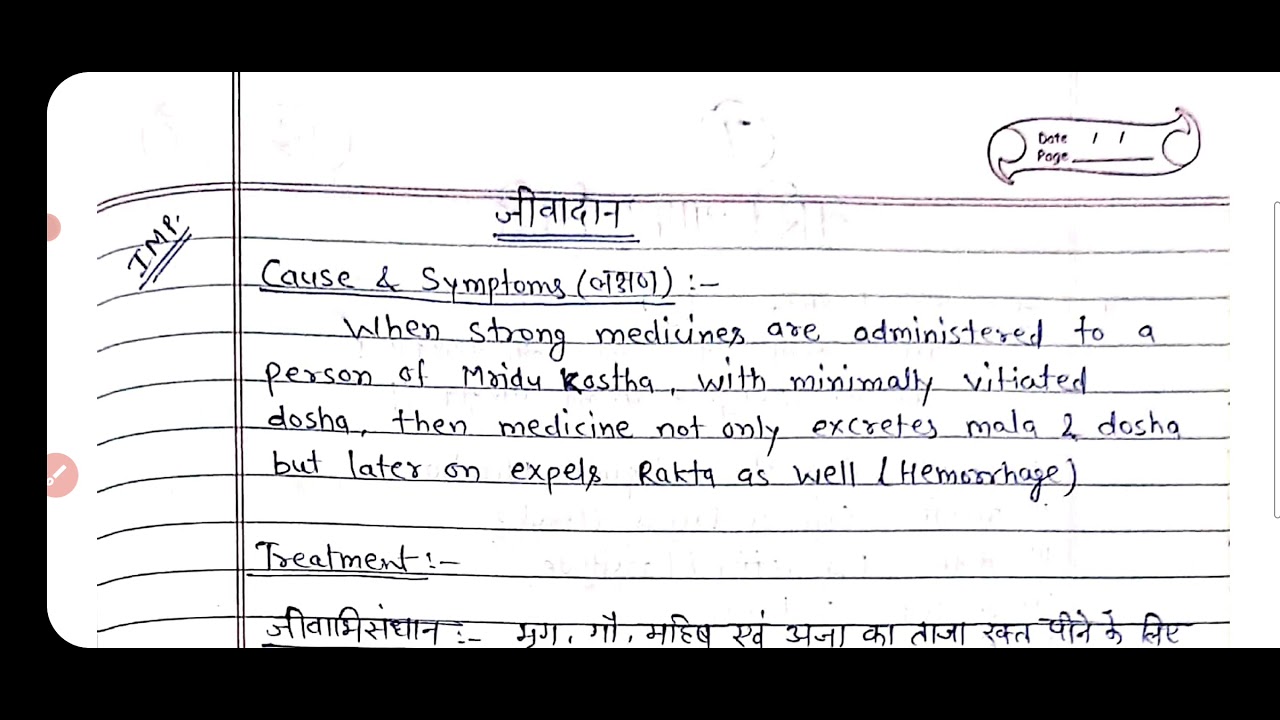 Date / /
Page
जीवादान
IMP.
Cause & Symptoms (लक्षण) :-
When strong medicines are administered to a
person of Mridu Kostha, with minimally vitiated
dosha, then medicine not only excretes mala & dosha
but later on expels Rakta as well (Hemorrhage)
Treatment :-
जीवाभिसंधान :- मृग, गौ, महिष एवं अजा का ताजा रक्त पीने के लिए